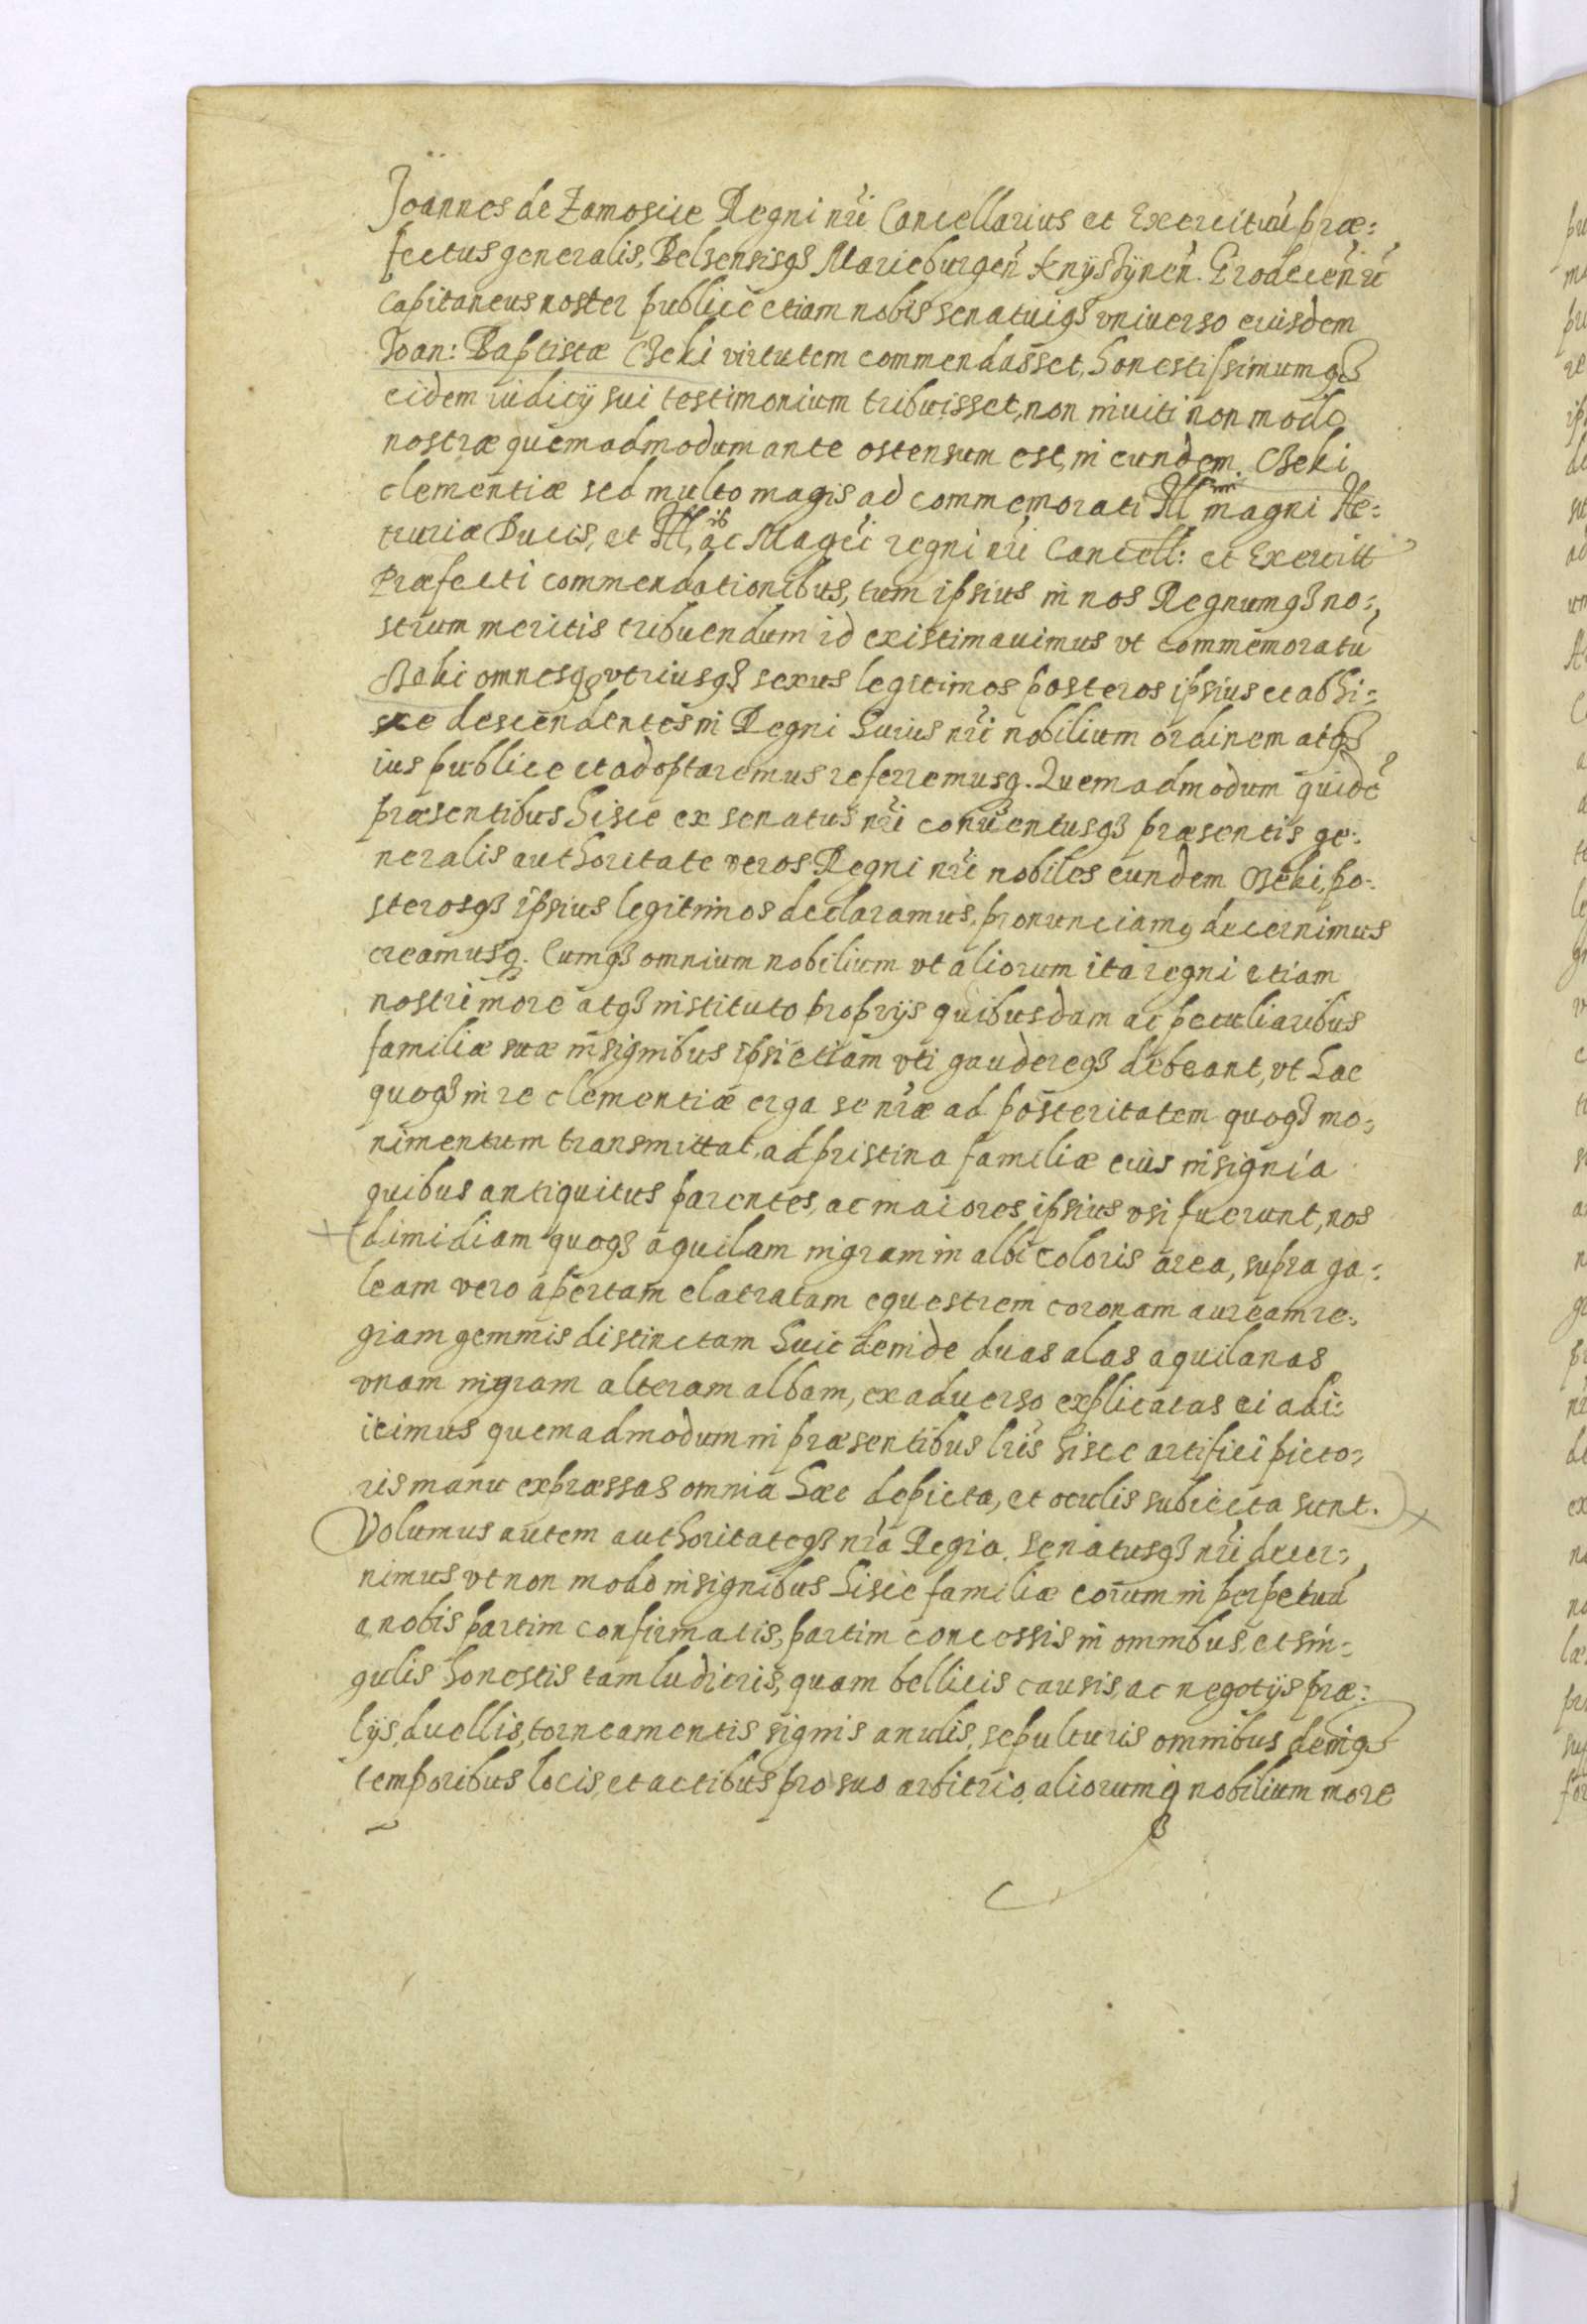 Joannes de Zamoscie Regni nrĩ Cancellarius et Exercituũ præ:
fectus generalis, Belsensisq₃ Marieburgeñ Knÿsdÿneñ. Grodeceñ ũ
Capitaneus noster publice etiam nobis senatuiq₃ vniuerso eiusdem
Joan: Baptistæ Cseki virtutem commendasset, honestissimumq₃
eidem iudicÿ sui testimonium tribuisset, non inuiti non modo
nostræ quemadmodum ante ostensum est, in eundem Cseki
clementiæ sed multo magis ad commemorati Ill^mi magni He:
truriæ Ducis, et Ill^is ac Magci regni nrĩ Cancell: et Exercitt
Præfecti commendationibus, tum ipsius in nos Regnumq₃ no:
strum meritis tribuendum id existimauimus vt commemoratũ
Cseki omnesq₃ vtriusq₃ sexus legitimos posteros ipsius et ab hi:
sce descendentes in Regni huius nrĩ nobilium ordinem atq₃
ius publice et adoptaremus referremusq₃. Quemadmodum quidẽ
præsentibus hisce ex senatus nrĩ conuentusq₃ præsentis ge:
neralis authoritate veros Regni nrĩ nobiles eundem Cseki, po:
sterosq₃ ipsius legitimos declaramus, pronunciamꝯ decernimus
creamusq₃. Cumq₃ omnium nobilium vt aliorum ita regni etiam
nostri more atq₃ instituto proprÿs quibusdam ac peculiaribus
familiæ suæ insignibus ipsi etiam vti gaudereq₃ debeant, vt hac
quoq₃ in re clementiæ erga se nræ ad posteritatem quoq₃ mo:
nimentum transmittat, ad pristina familiæ eius insignia
quibus antiquitus parentes, ac maiores ipsius vsi fuerunt, nos
+ (dimidiam quoq₃ aquilam nigram in albi coloris area, supra ga:
leam vero apertam elatratam equestrem coronam auream re:
giam gemmis distinctam huic deinde duas alas aquilanas
vnam nigram alteram albam, ex aduerso explicatas ei adi:
icimus quemadmodum in præsentibus lris hisce artifici picto:
ris manu expræssas omnia hæc depicta, et oculis subiecta sunt.) +
Volumus autem authoritateq₃ nrã Regia, senatusq₃ nrĩ decer:
nimus vt non modo insignibus hisce familiæ eorum in perpetuũ
a nobis partim confirmatis, partim concessis in omnibus, et sin:
gulis honestis tam ludicris, quam bellicis causis, ac negotÿs præ:
lÿs, duellis, torneamentis signis anulis, sepulturis omnibus deniq₃
temporibus locis, et actibus pro suo arbitrio, aliorumq₃ nobilium more